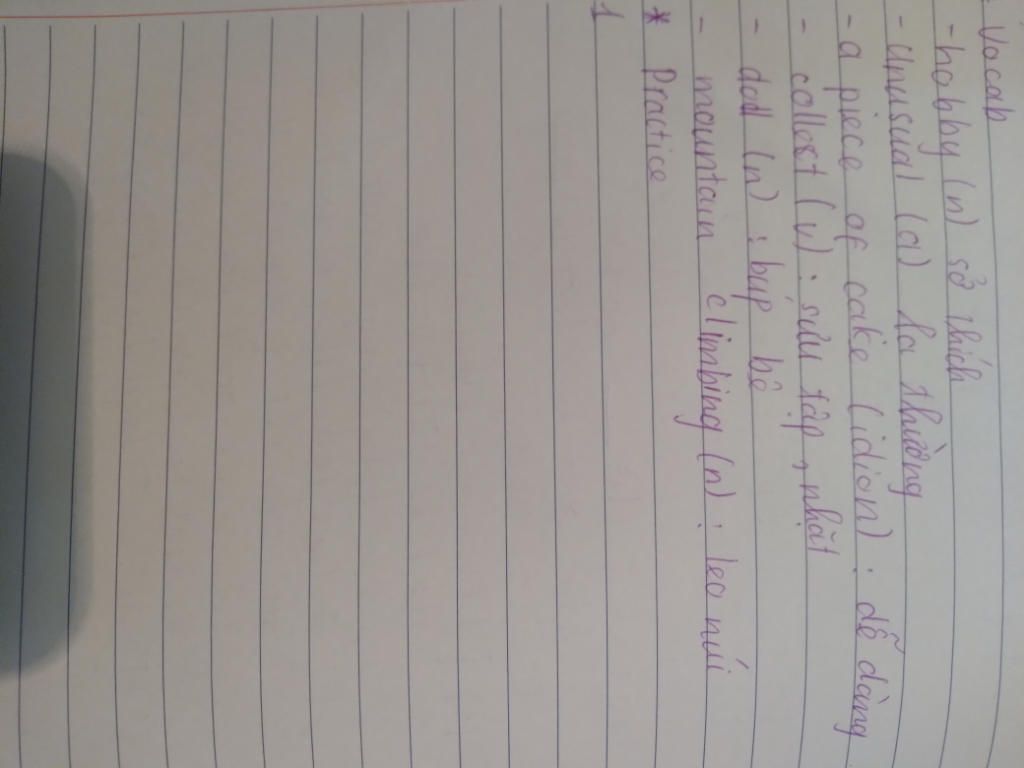 * Vocab
- hobby (n) sở thích
- Unusual (a) lạ thường
- a piece of cake (idion) : dễ dàng
- collest (v) : sưu tập, nhặt
- doll (n) : búp bê
- mountain climbing (n) : leo núi
* Practice
1